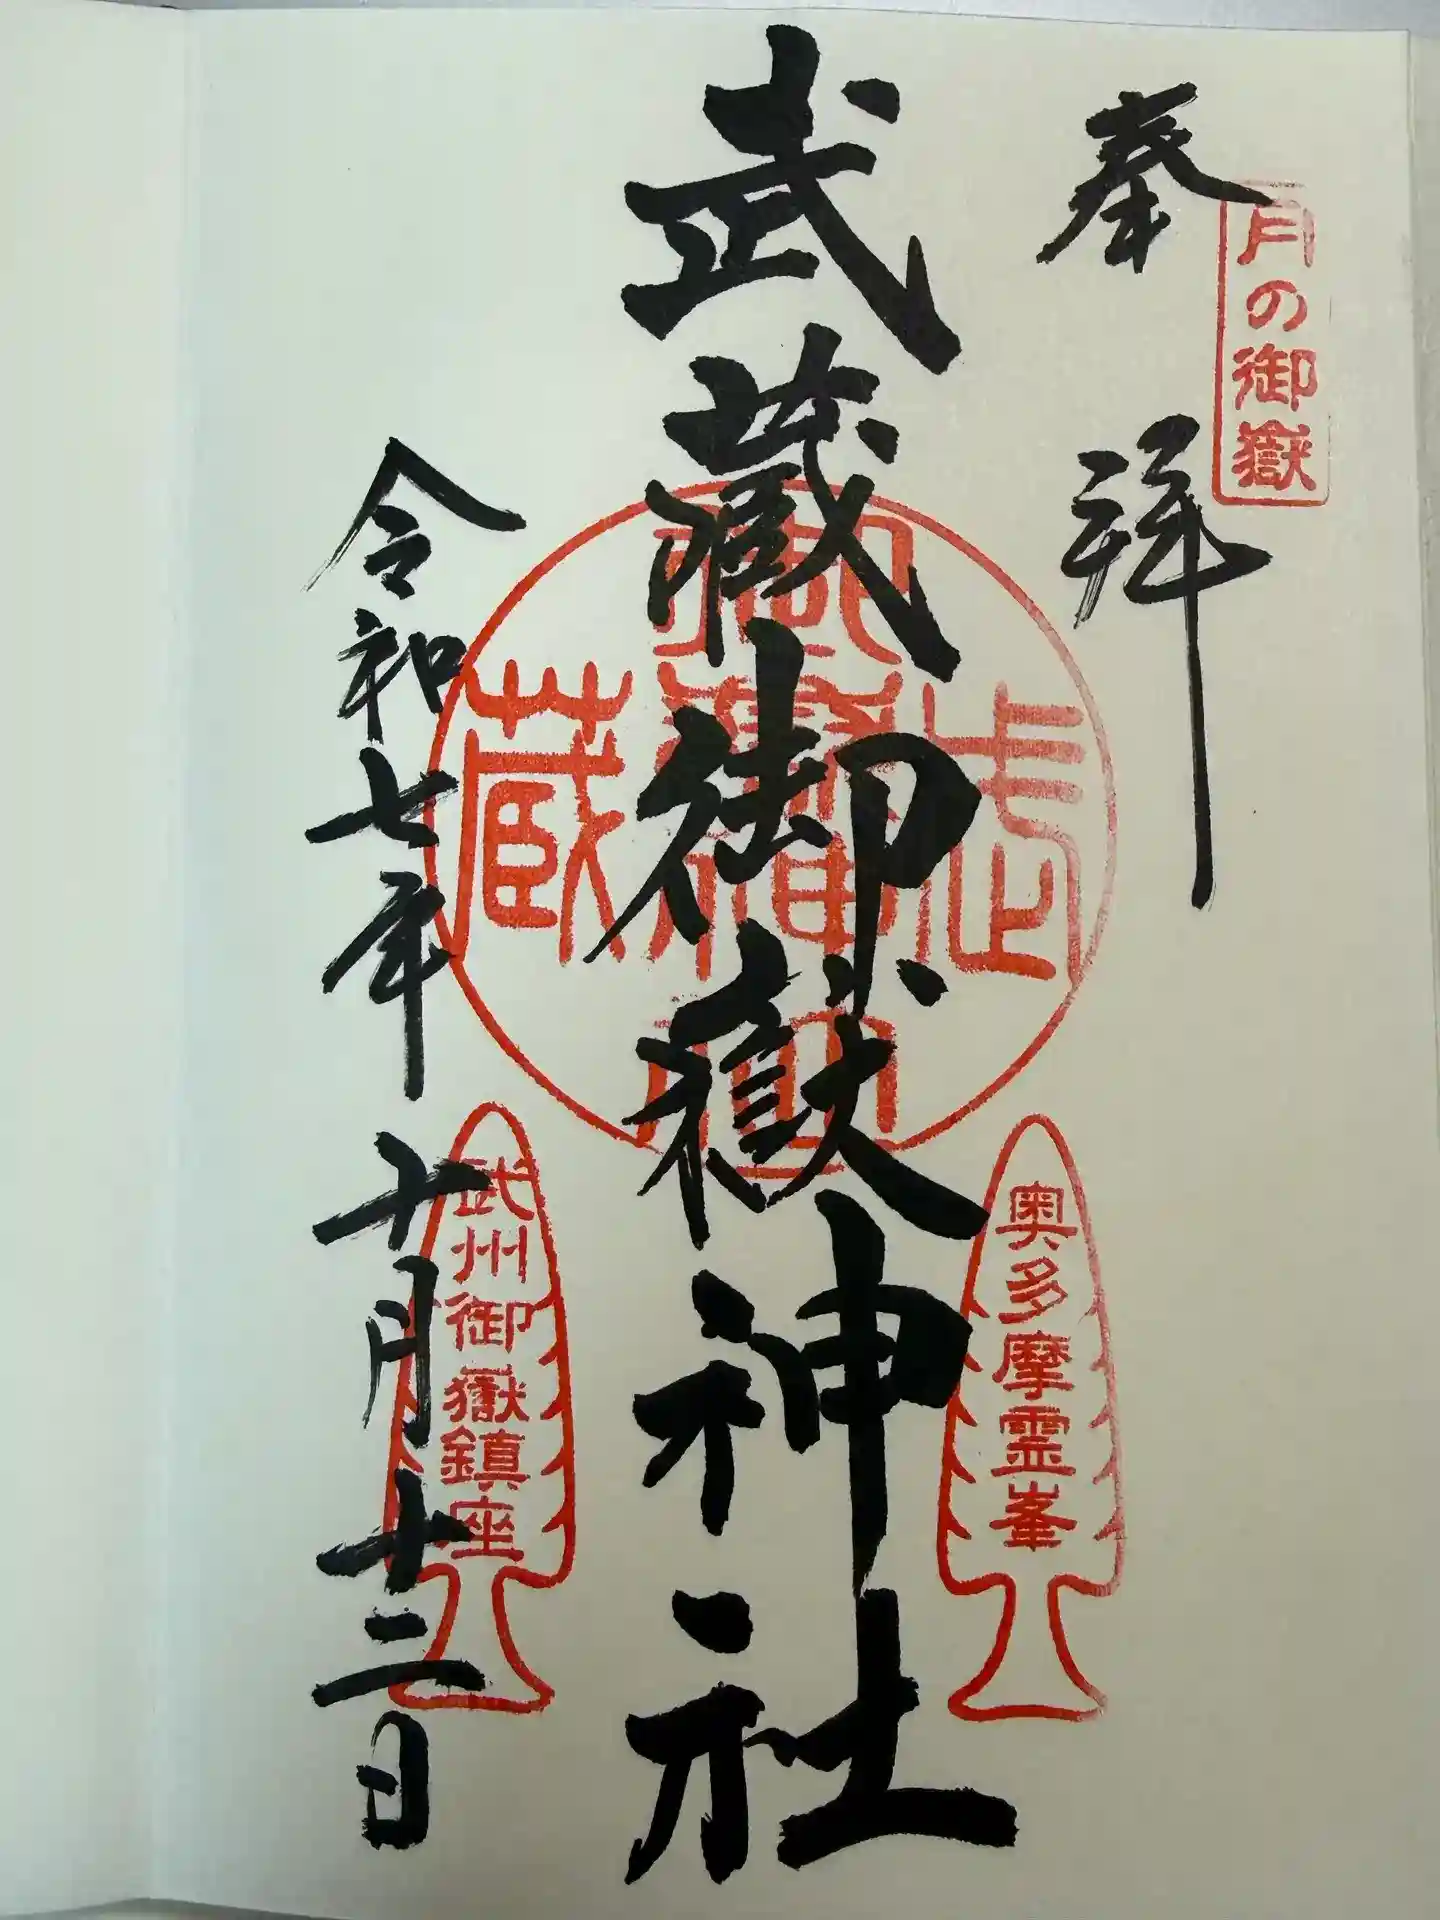 月の御嶽
奉拝
武蔵御嶽神社
武
御
蔵
奥多摩霊峯
武州御嶽鎮座
令和七年十月十二日